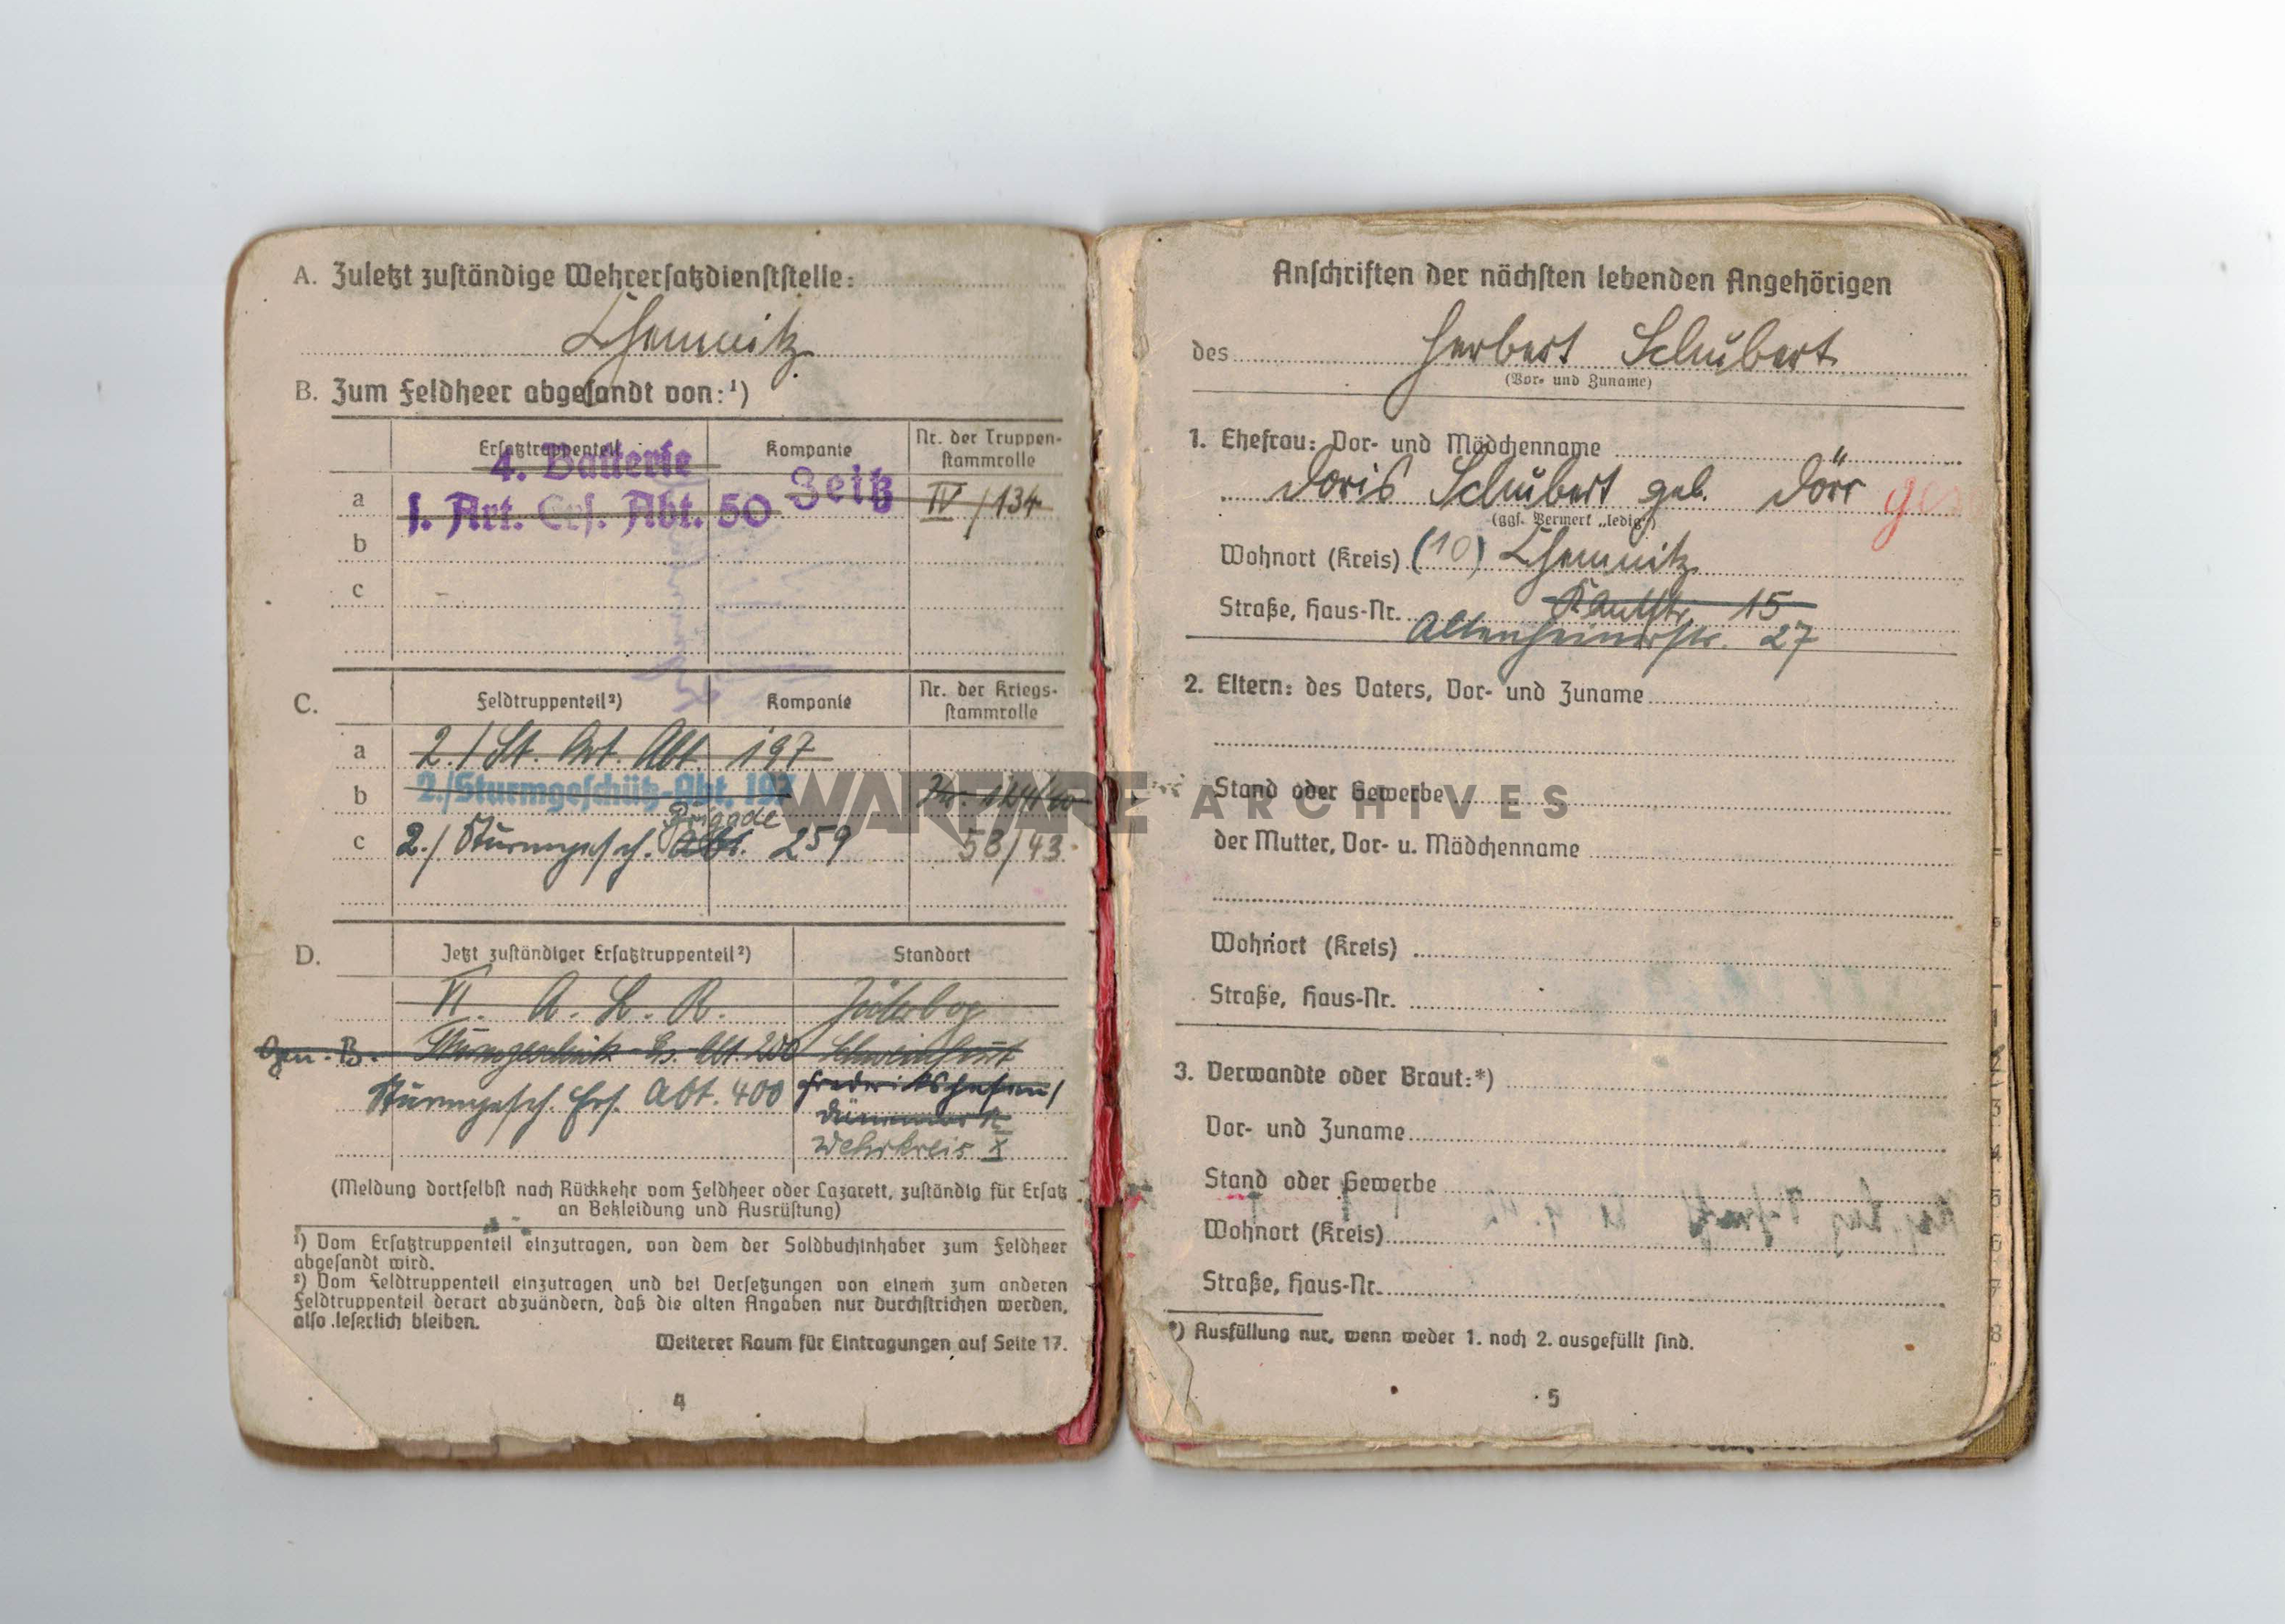 A. Zuletzt zuständige Wehrersatzdienststelle:
Chemnitz
B. Zum Feldheer abgesandt von:¹)
Ersatztruppenteil Kompanie Nr. der Truppen-
stammrolle
4. Batterie
a l. Art. Ers. Abt. 50 Zeitz IV/134
b
c
C. Feldtruppenteil²) Kompanie Nr. der Kriegs-
stammrolle
a 2./St. Art. Abt. 197
b 2./Sturmgeschütz-Abt. 197
Brigade
c 2./Sturmgesch. Abt. 259 58/43
D. Jetzt zuständiger Ersatztruppenteil²) Standort
VI. A. L. R. Jüterbog
Gen. B. Sturmgeschütz-Ers. Abt. 200 Schweinfurt
Sturmgesch. Ers. Abt. 400 Frederikshafen/
Dänemark
Wehrkreis X
(Meldung dortselbst nach Rückkehr vom Feldheer oder Lazarett, zuständig für Ersatz
an Bekleidung und Ausrüstung)
¹) Vom Ersatztruppenteil einzutragen, von dem der Soldbuchinhaber zum Feldheer
abgesandt wird.
²) Vom Feldtruppenteil einzutragen und bei Versetzungen von einem zum anderen
Feldtruppenteil derart abzuändern, daß die alten Angaben nur durchstrichen werden,
also leserlich bleiben.
Weiterer Raum für Eintragungen auf Seite 17.
4
Anschriften der nächsten lebenden Angehörigen
des Herbert Schubert
(Vor- und Zuname)
1. Ehefrau: Vor- und Mädchenname
Doris Schubert geb. Dörr
(ggf. Vermerk „ledig")
Wohnort (Kreis) (10) Chemnitz
Straße, Haus-Nr. Kantstr. 15
Altenhainerstr. 27
2. Eltern: des Vaters, Vor- und Zuname
Stand oder Gewerbe
der Mutter, Vor- u. Mädchenname
Wohnort (Kreis)
Straße, Haus-Nr.
3. Verwandte oder Braut:*)
Vor- und Zuname
Stand oder Gewerbe
Wohnort (Kreis)
Straße, Haus-Nr.
*) Ausfüllung nur, wenn weder 1. noch 2. ausgefüllt sind.
5
WARFARE ARCHIVES